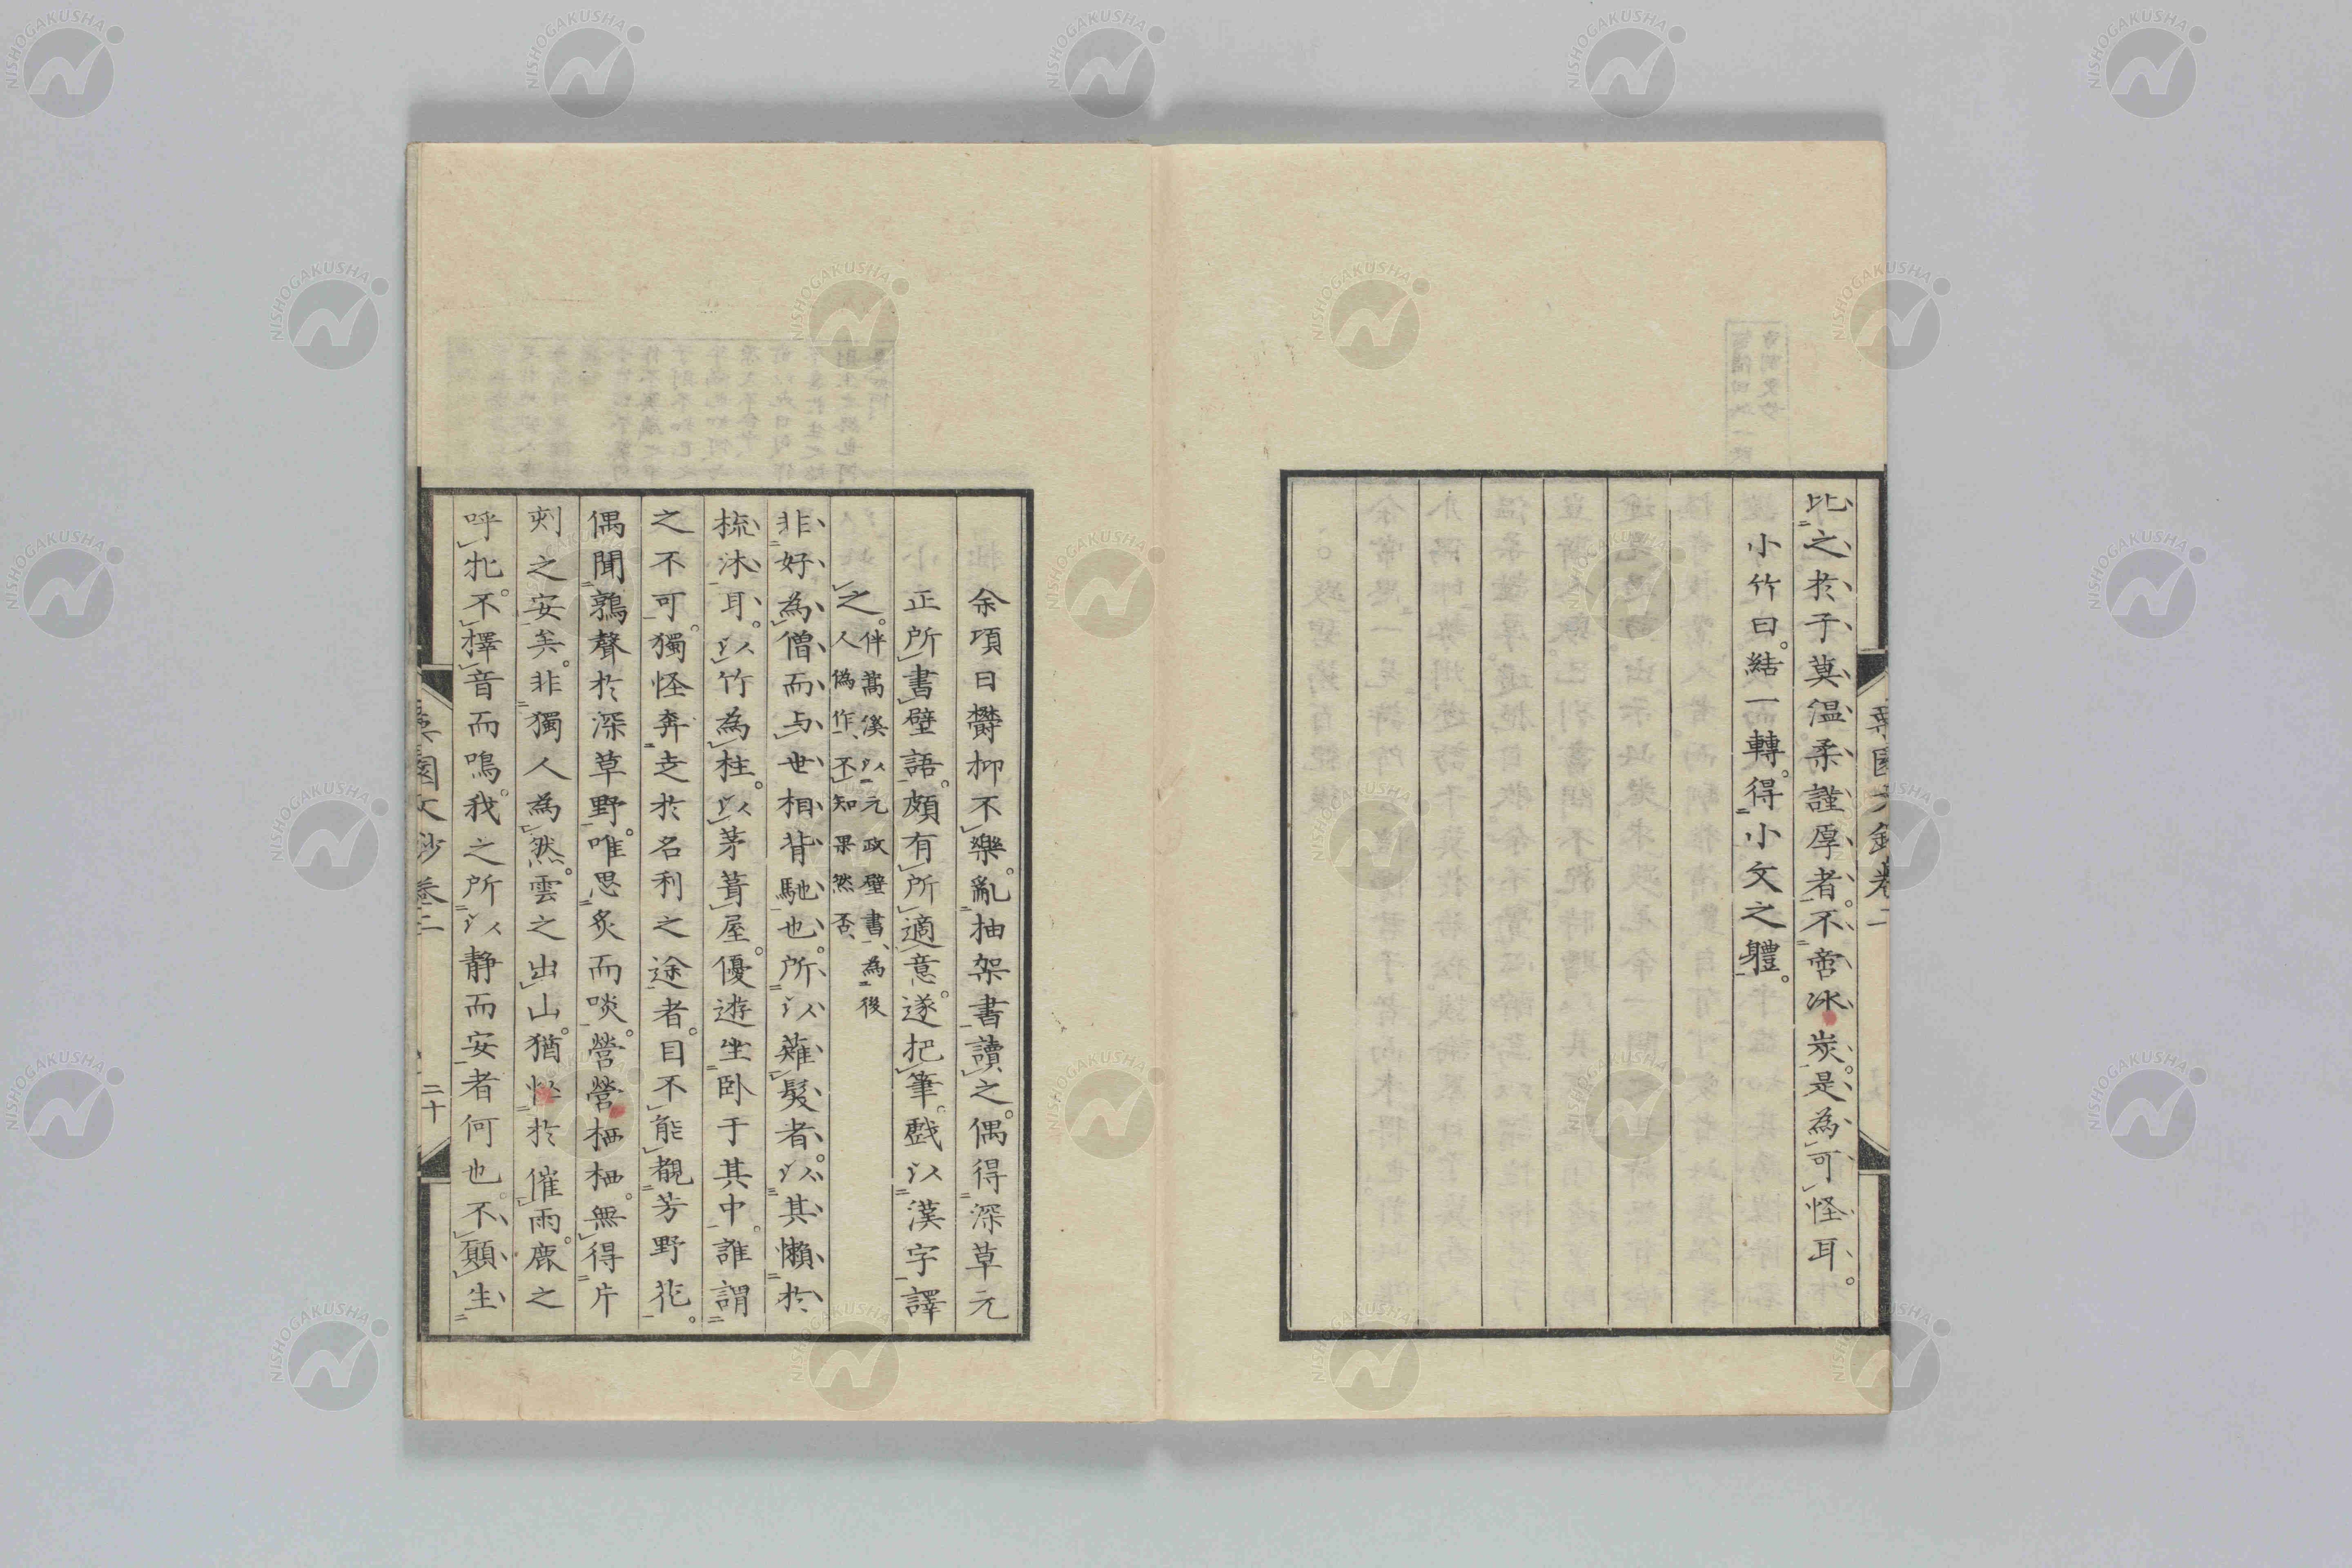 比之於子莫温柔謹厚者。不啻冰炭。是為可怪耳。
小竹曰。結一轉。得小文之體。
余項日欝抑不樂。亂抽架書讀之。偶得深草元
正所書壁語。頗有所適意。遂把筆。戯以漢字譯
之。伴蒿溪以元政壁書、為後
人偽作、不知果然否、
非好為僧而与世相背馳也。所以薙髮者。以其懶於
梳沐耳。以竹為柱。以茅葺屋。優遊坐卧于其中。誰謂
之不可。獨怪奔走於名利之途者。目不能覩芳野花。
偶聞鶉聲於深草野。唯思炙而啖。營營栖栖。無得片
刻之安矣。非獨人為然。雲之出山。猶忙於催雨。鹿之
呼牝。不擇音而鳴。我之所以静而安者何也。不願生
文鈔卷二
二十
NISHOGAKUSHA